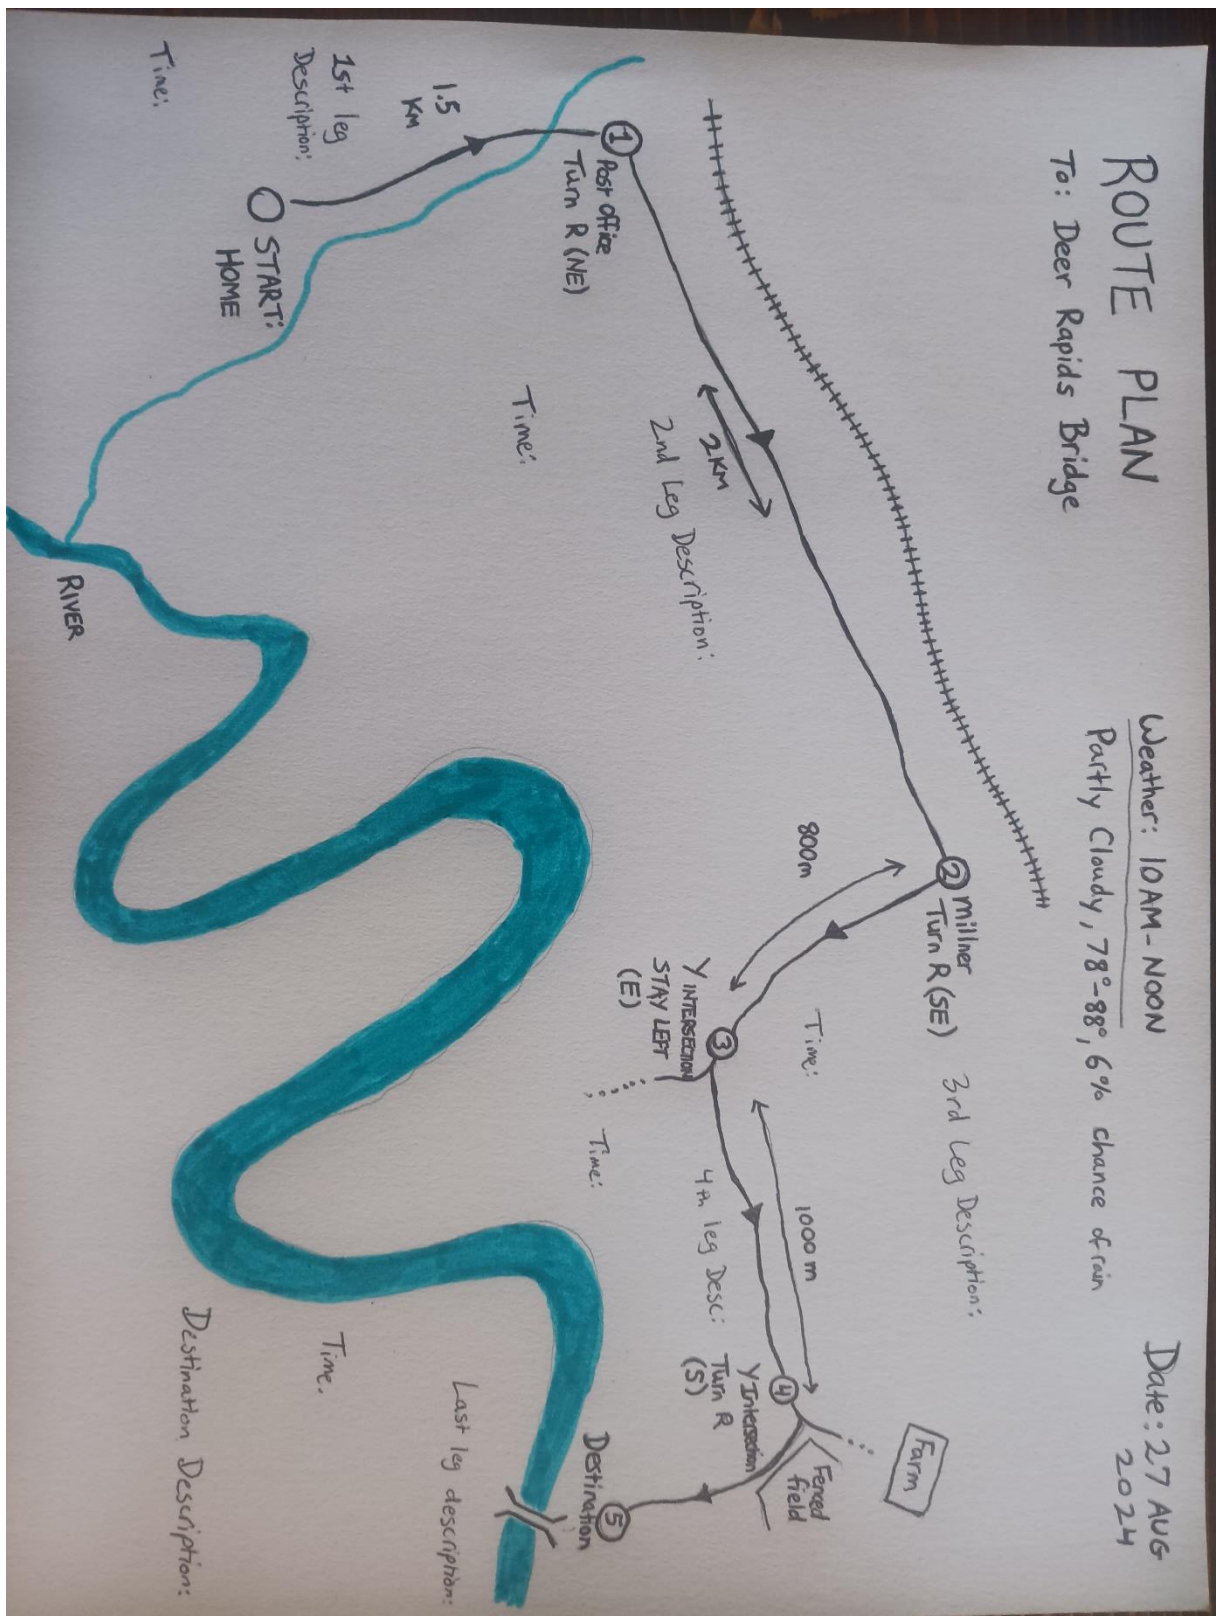 ROUTE PLAN
To: Deer Rapids Bridge
Weather: 10AM-NOON
Partly Cloudy, 78°-88°, 6% chance of rain
Date: 27 AUG
2024
START:
HOME
1st leg
Description:
Time:
1.5
KM
1
Post office
Turn R (NE)
2KM
2nd Leg Description:
Time:
2
millner
Turn R (SE)
3rd Leg Description:
800m
Time:
3
Y INTERSECTION
STAY LEFT
(E)
1000m
4th leg Desc:
Time:
4
Y Intersection
Turn R
(S)
Farm
Fenced
field
5
Destination
Last leg description:
Time.
Destination Description:
RIVER